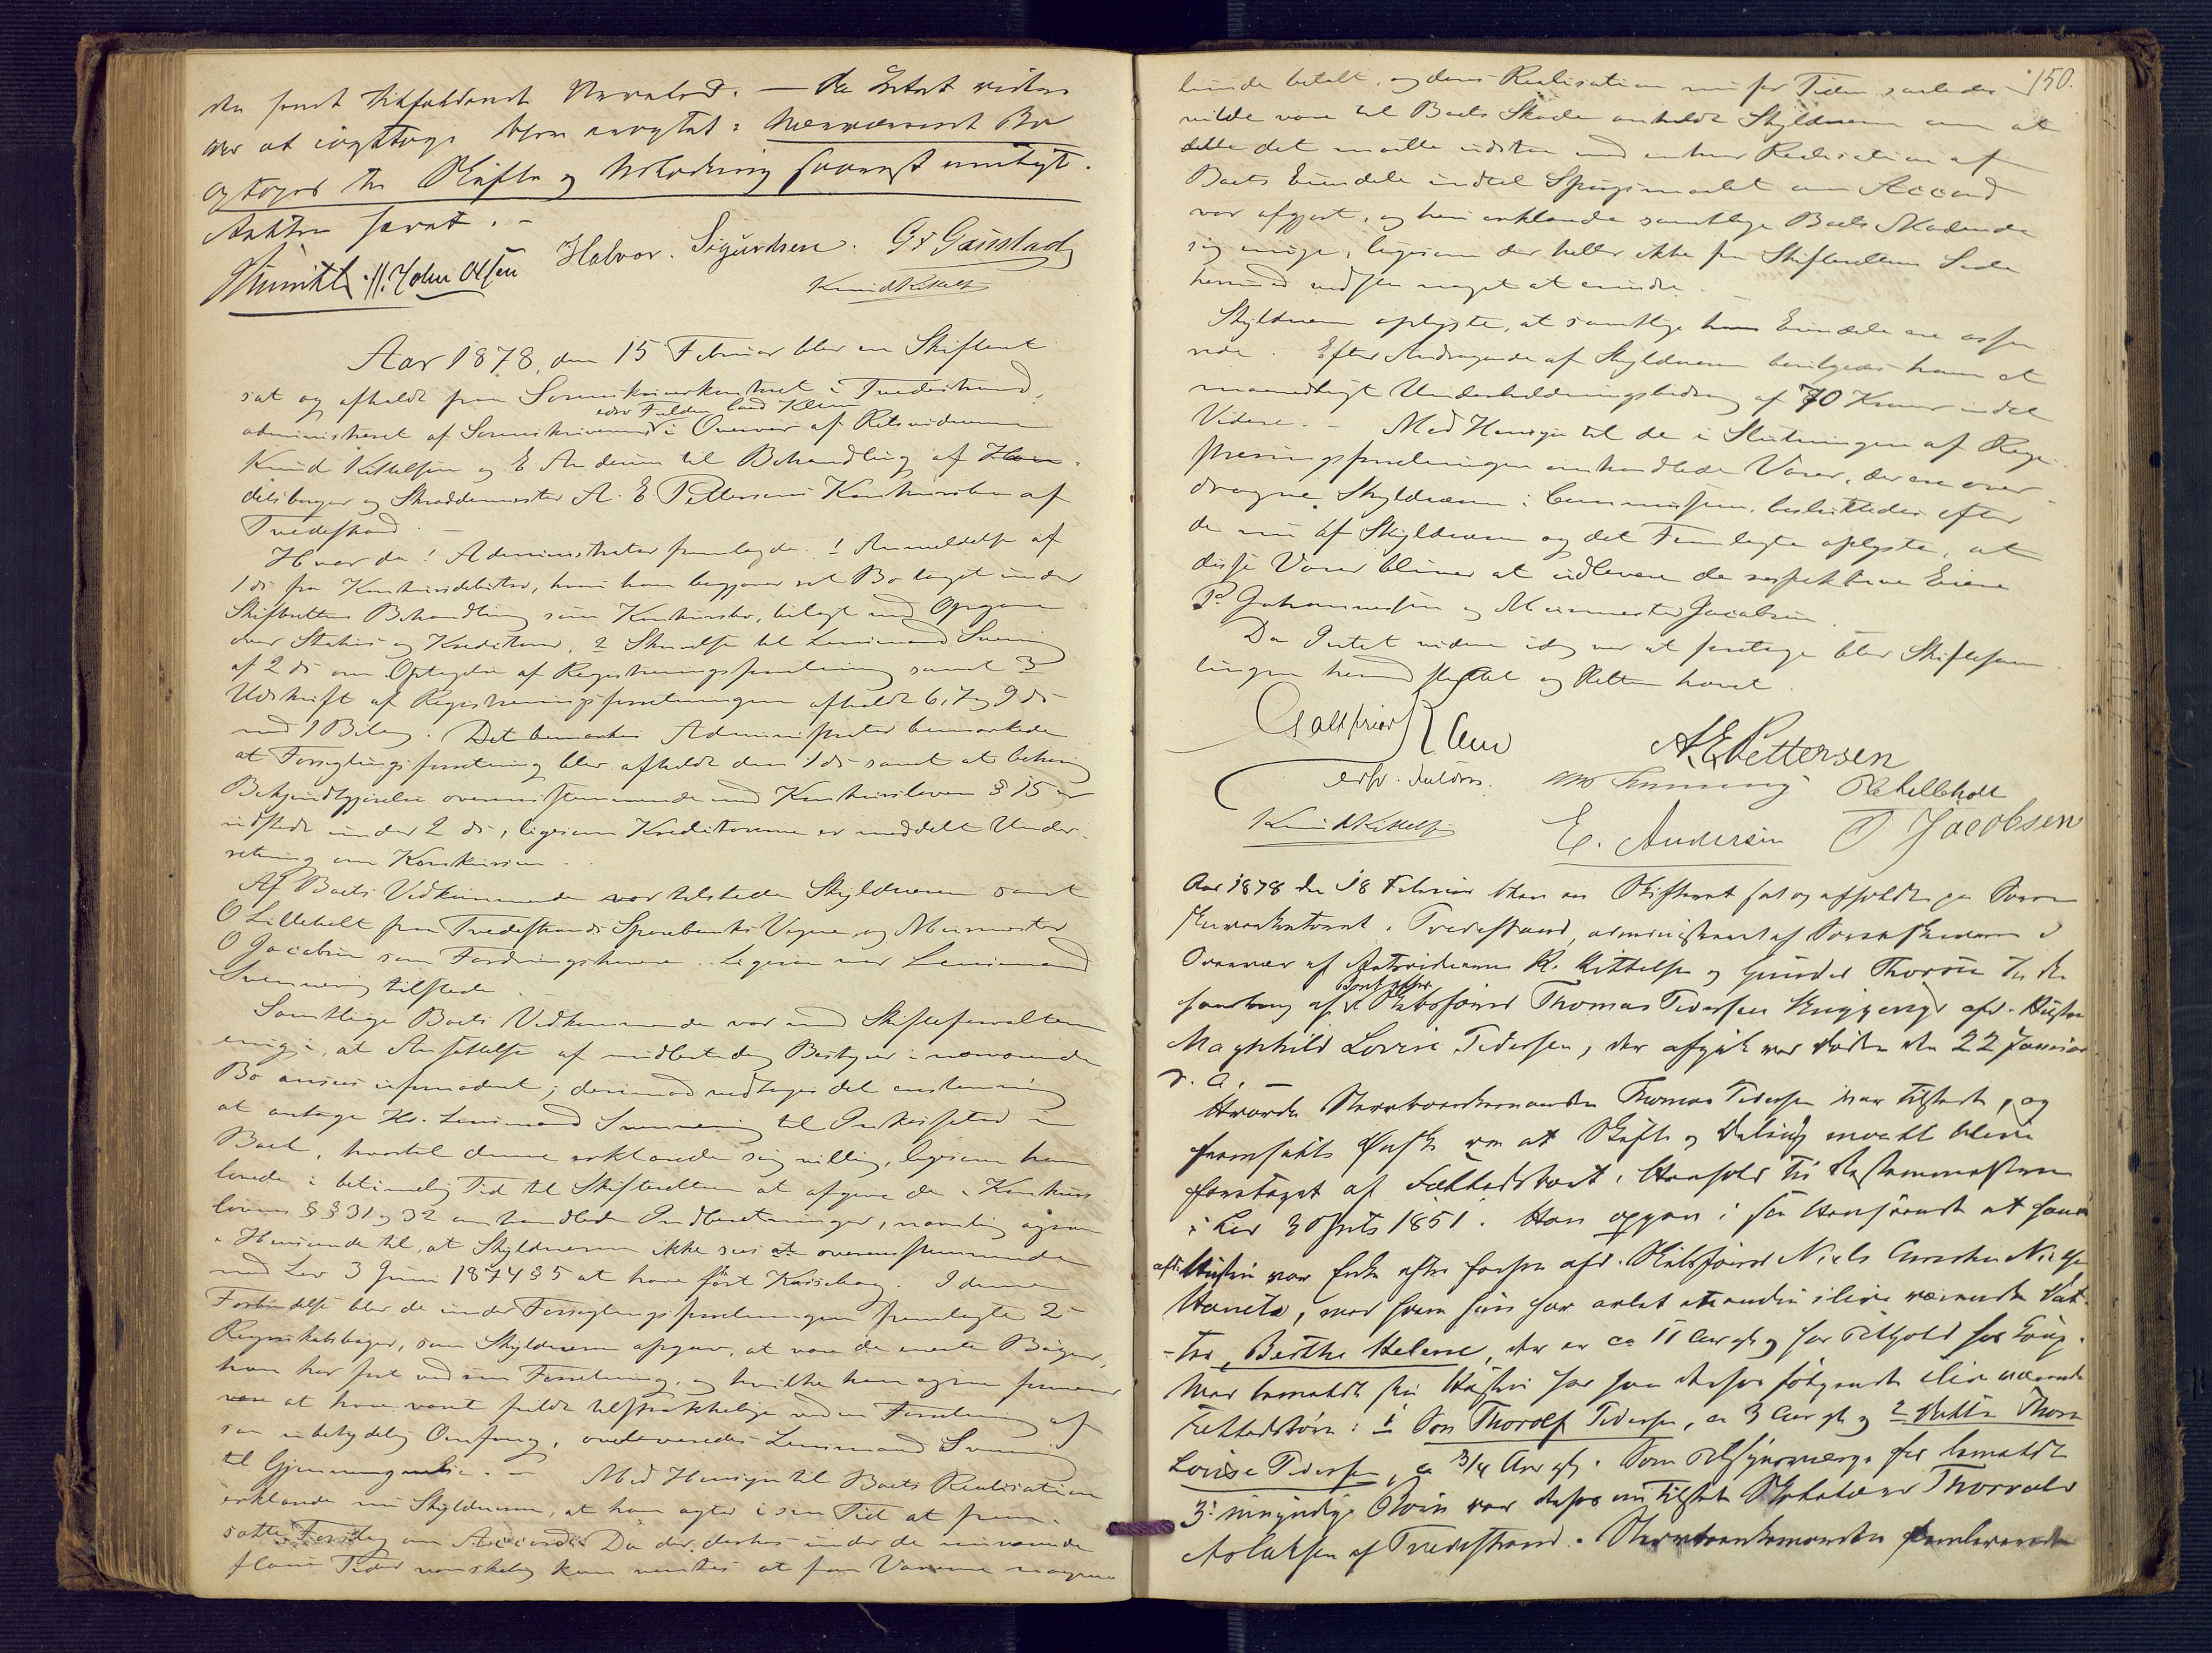 da fandt tilfældende Nærmeste. — Da Intet videre
var at iagttage blev eragtet: Nærværende Bo
optages til Skifte og Udlodning saavidt muligt.
Retten hævet. –
H. John Olsen Halvor Sigurdsen. G Gaustad
Knud Kittelsen
Aar 1878, den 15 Februar blev en Skifteret
sat og afholdt paa Sorenskriverkontoret i Tvedestrand,
edsv Fuldm. Cand Klem
administreret af Sorenskriveren i Overvær af Retsvidnerne
Knud Kittelsen og E Andersen til Behandling af Han-
delsborger og Skræddermester A. E Pettersens Konkursbo af
Tvedestrand. —
Hvorda: Administrator fremlagde: 1 Anmeldelse af
1 ds fra Konkursdebitor, hvori han begjærer sit Bo taget under
Skifterettens Behandling som Konkursbo, bilagt med Opgave
over Status og Kreditorer, 2 Skrivelse til Lensmand Svenning
af 2 ds om Optagelse af Registreringsforretning samt 3
Udskrift af Registreringsforretningen afholdt 6, 7 og 9 ds
med 1 Bilag. Det bemærkes Administrator bemærkede
at Forseglingsforretning blev afholdt den 1 ds samt at behørig
Bekjendtgjørelse overensstemmende med Konkursloven § 15 er
udstedt under 2 ds, ligesom Kreditorerne er meddelt Under-
retning om Konkursen.
Af Boets Vedkommende var tilstede Skyldneren samt
O Lilleholt paa Tvedestrands Sparebanks Vegne og Murmester
O Jacobsen som Fordringshavere. Ligesom var Lensmand
Svenning tilstede.
Samtlige Boets Vedkommende var med Skifteforvalteren
enige i, at Ansættelse af midlertidig Bestyrer i nærværende
Bo ansees ufornødent; derimod vedtoges det enstemmig
at antage Hr. Lensmand Svenning til Inkassator i
Boet, hvortil denne erklærede sig villig, ligesom han
lovede i betimelig Tid til Skifteretten at afgive de i Konkurs-
lovens §§ 31 og 32 omhandlede Indberetninger, navnlig ogsaa
i Henseende til, at Skyldneren ikke sees at overensstemmende
med Lov 3 Juni 1874 § 5 at have ført Kassebog. I denne
Forbindelse blev de under Forseglingsforretningen fremlagte 2
Regnskabsbøger, som Skyldneren opgav, at være de eneste Bøger,
han har ført ved sin Forretning, og hvilke han ogsaa formener
være at have været fuldt tilstrækkelige ved en Forretning af
saa ubetydelig Omfang, overleveredes Lensmand Svenning
til Gjennemgaaelse. — Med Hensyn til Boets Realisation
erklærede nu Skyldneren, at han agter i sin Tid at frem-
sætte Forslag om Accord. Da der desuden under de nuværende
flaue Tider vanskelig kan ventes at faa Varerne nogen-
150.
lunde betalt, og deres Realisation nu for Tiden saaledes
vilde være til Boets Skade anholdt Skyldneren om at
dette det maatte udstaa med enhver Realisation af
Boets Eiendele indtil Spørgsmaalet om Accord
var afgjort, og heri erklærede samtlige Boets Mødende
sig enige, ligesom der heller ikke fra Skifterettens Side
herimod ansees noget at erindre.
Skyldneren oplyste, at samtlige hans Eiendele ere assu-
rede. Efter Andragende af Skyldneren bevilgedes ham et
maanedligt Underholdningsbidrag af 70 Kroner indtil
Videre. – Med Hensyn til de i Slutningen af Regi-
streringsforretningen omhandlede Varer, der ere over-
dragne Skyldneren i Commission, besluttedes efter
de nu af Skyldneren og det Fremlagte oplyste, at
disse Varer bliver at udlevere de respektive Eiere
P. Johannesen og Murmester Jacobsen.
Da Intet videre idag var at foretage blev Skiftesam-
lingen hermed sluttet og Retten hævet.
Klem
edsv. Fuldm.
A. E Pettersen
Svenning O Lilleholt
Knud Kittelsen E. Andersen O Jacobsen
Aar 1878 den 18 Februar blev en Skifteret sat og afholdt paa Soren-
skriverkontoret i Tvedestrand, administreret af Sorenskriveren i
Overvær af Retsvidnerne K. Kittelsen og Gunder Thorsen til Be-
handling af Boet efter Skibsfører Thomas Tidersen afd. Hustru
Magnhild Lovise Tidersen, der afgik ved Døden den 22 Januar
d. A. —
Hvorda Stervboenkemanden Thomas Tidersen var tilstede, og
fremsatte Ønske om at Skifte og Deling maatte blive
foretaget af Fællesboet, i Henhold til Bestemmelserne
i Lov 30 Juli 1851. Han opgav i saa Henseende at hans
afd: Hustru var Enke efter forhen afd. Skibsfører Niels Nielsen
, med hvem hun har avlet een endnu i live værende Dat-
ter, Berthe Helene, der er ca 11 Aar gl, og har Tilhold hos
Med bemeldte sin Hustru har han derhos følgende i live værende
Fællesbørn: 1 Søn Thorolf Tidersen, ca 3 Aar gl og 2 Datter Thora
Lovise Tidersen, ca 3/4 Aar gl. Som Tilsynsværge for bemeldte
3: umyndige Børn var derhos nu tilstede Thorvald
Aslaksen af Tvedestrand. Stervboenkemanden fremleverede